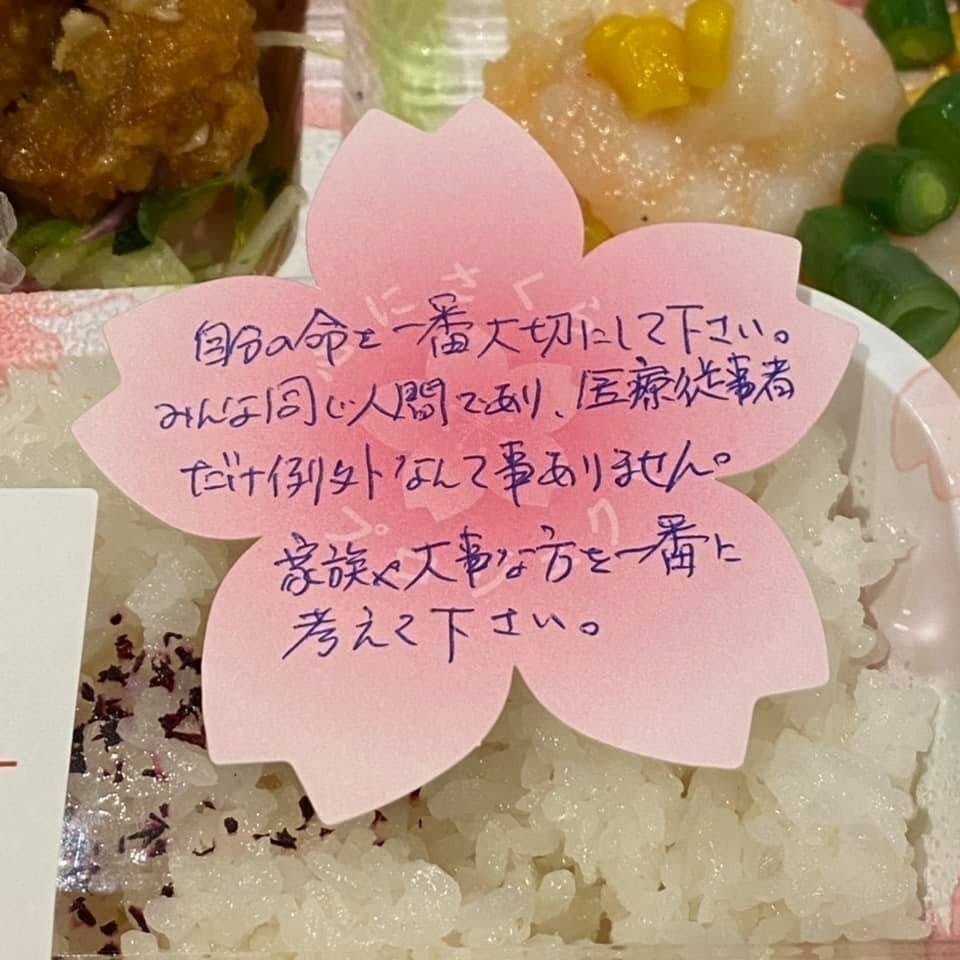 自分の命を一番大切にして下さい。
みんな同じ人間であり、医療従事者
だけ例外なんて事ありません。
家族や大事な方を一番に
考えて下さい。